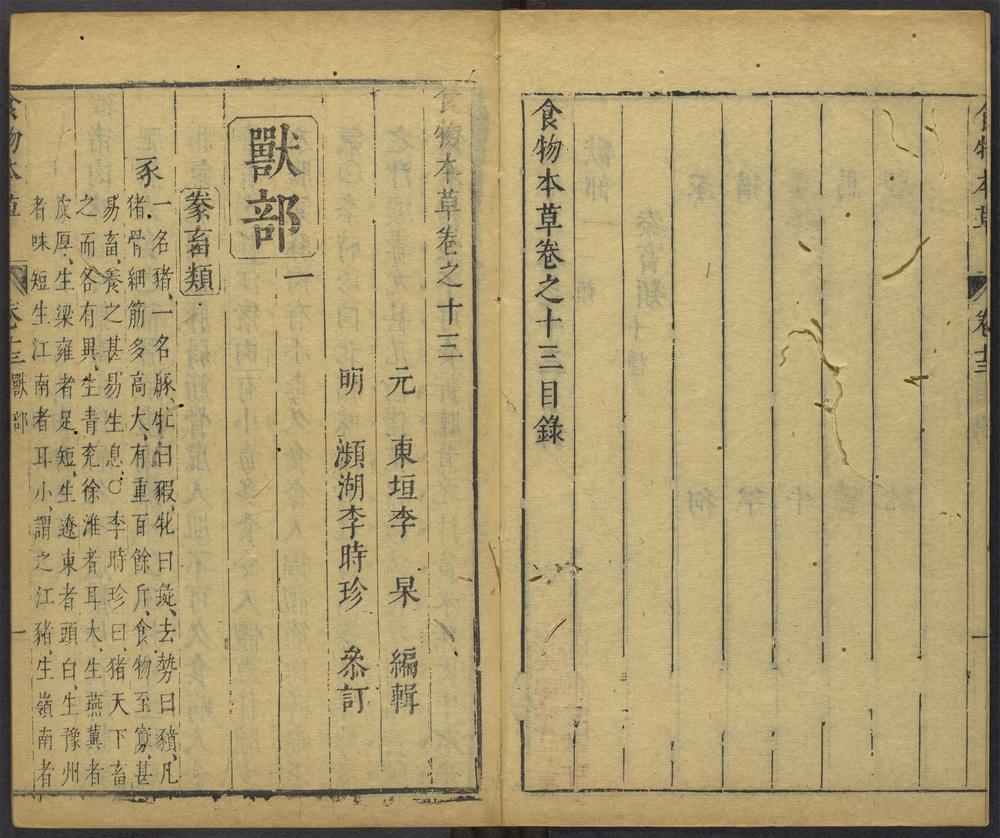 食物本草
卷十三
一
食物本草卷之十三目錄
食物本草卷之十三
元 東垣李 杲 編輯
明 瀕湖李時珍 叅訂
獸部一
豢畜類
豕
一名豬、一名豚、牡曰豭、牝曰彘、去勢曰豶、凡
猪骨細筋多高大、有重百餘斤、食物至寡、甚
易畜養之甚易生息、○李時珍曰、猪天下畜
之而各有異、生青兖徐淮者耳大、生燕冀者
皮厚、生梁雍者足短、生遼東者頭白、生豫州
者味短生江南者耳小、謂之江豬、生嶺南者
食物本草
卷十三 獸部
一